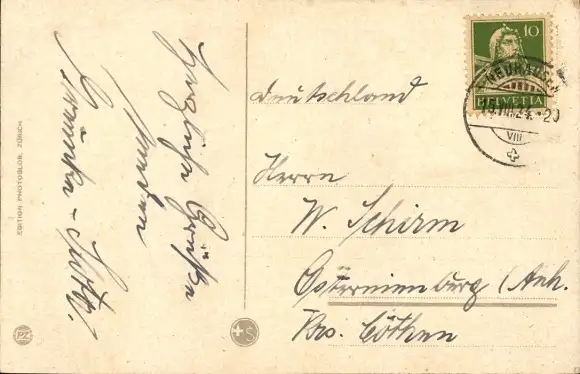 Herzliche Grüße
senden
EDITION PHOTOGLOB, ZÜRICH
PZ
S
10
HELVETIA
NEUHAUSEN
VIII
Deutschland
Herrn
W. Schirm
Osternienburg (Anh.
Krs. Cöthen